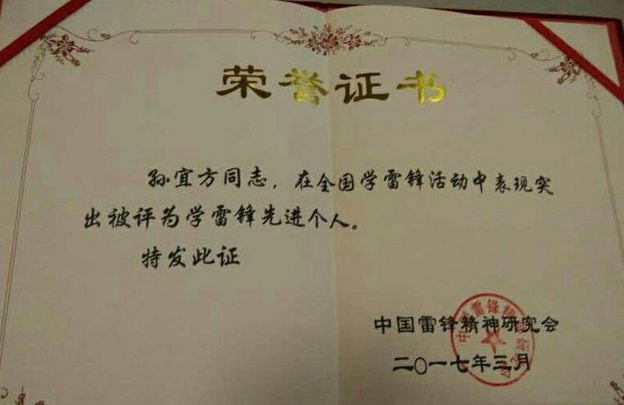 荣誉证书
孙宜方同志，在全国学雷锋活动中表现突
出被评为学雷锋先进个人。
特发此证
中国雷锋精神研究会
二〇一七年三月